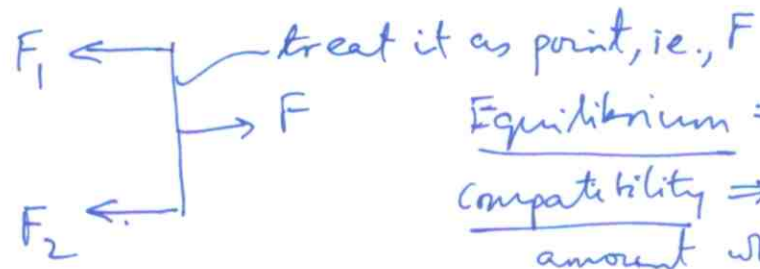 F₁ treat it as point, i.e., F
F Equilibrium =
compatibility ⇒
F₂ amount wh